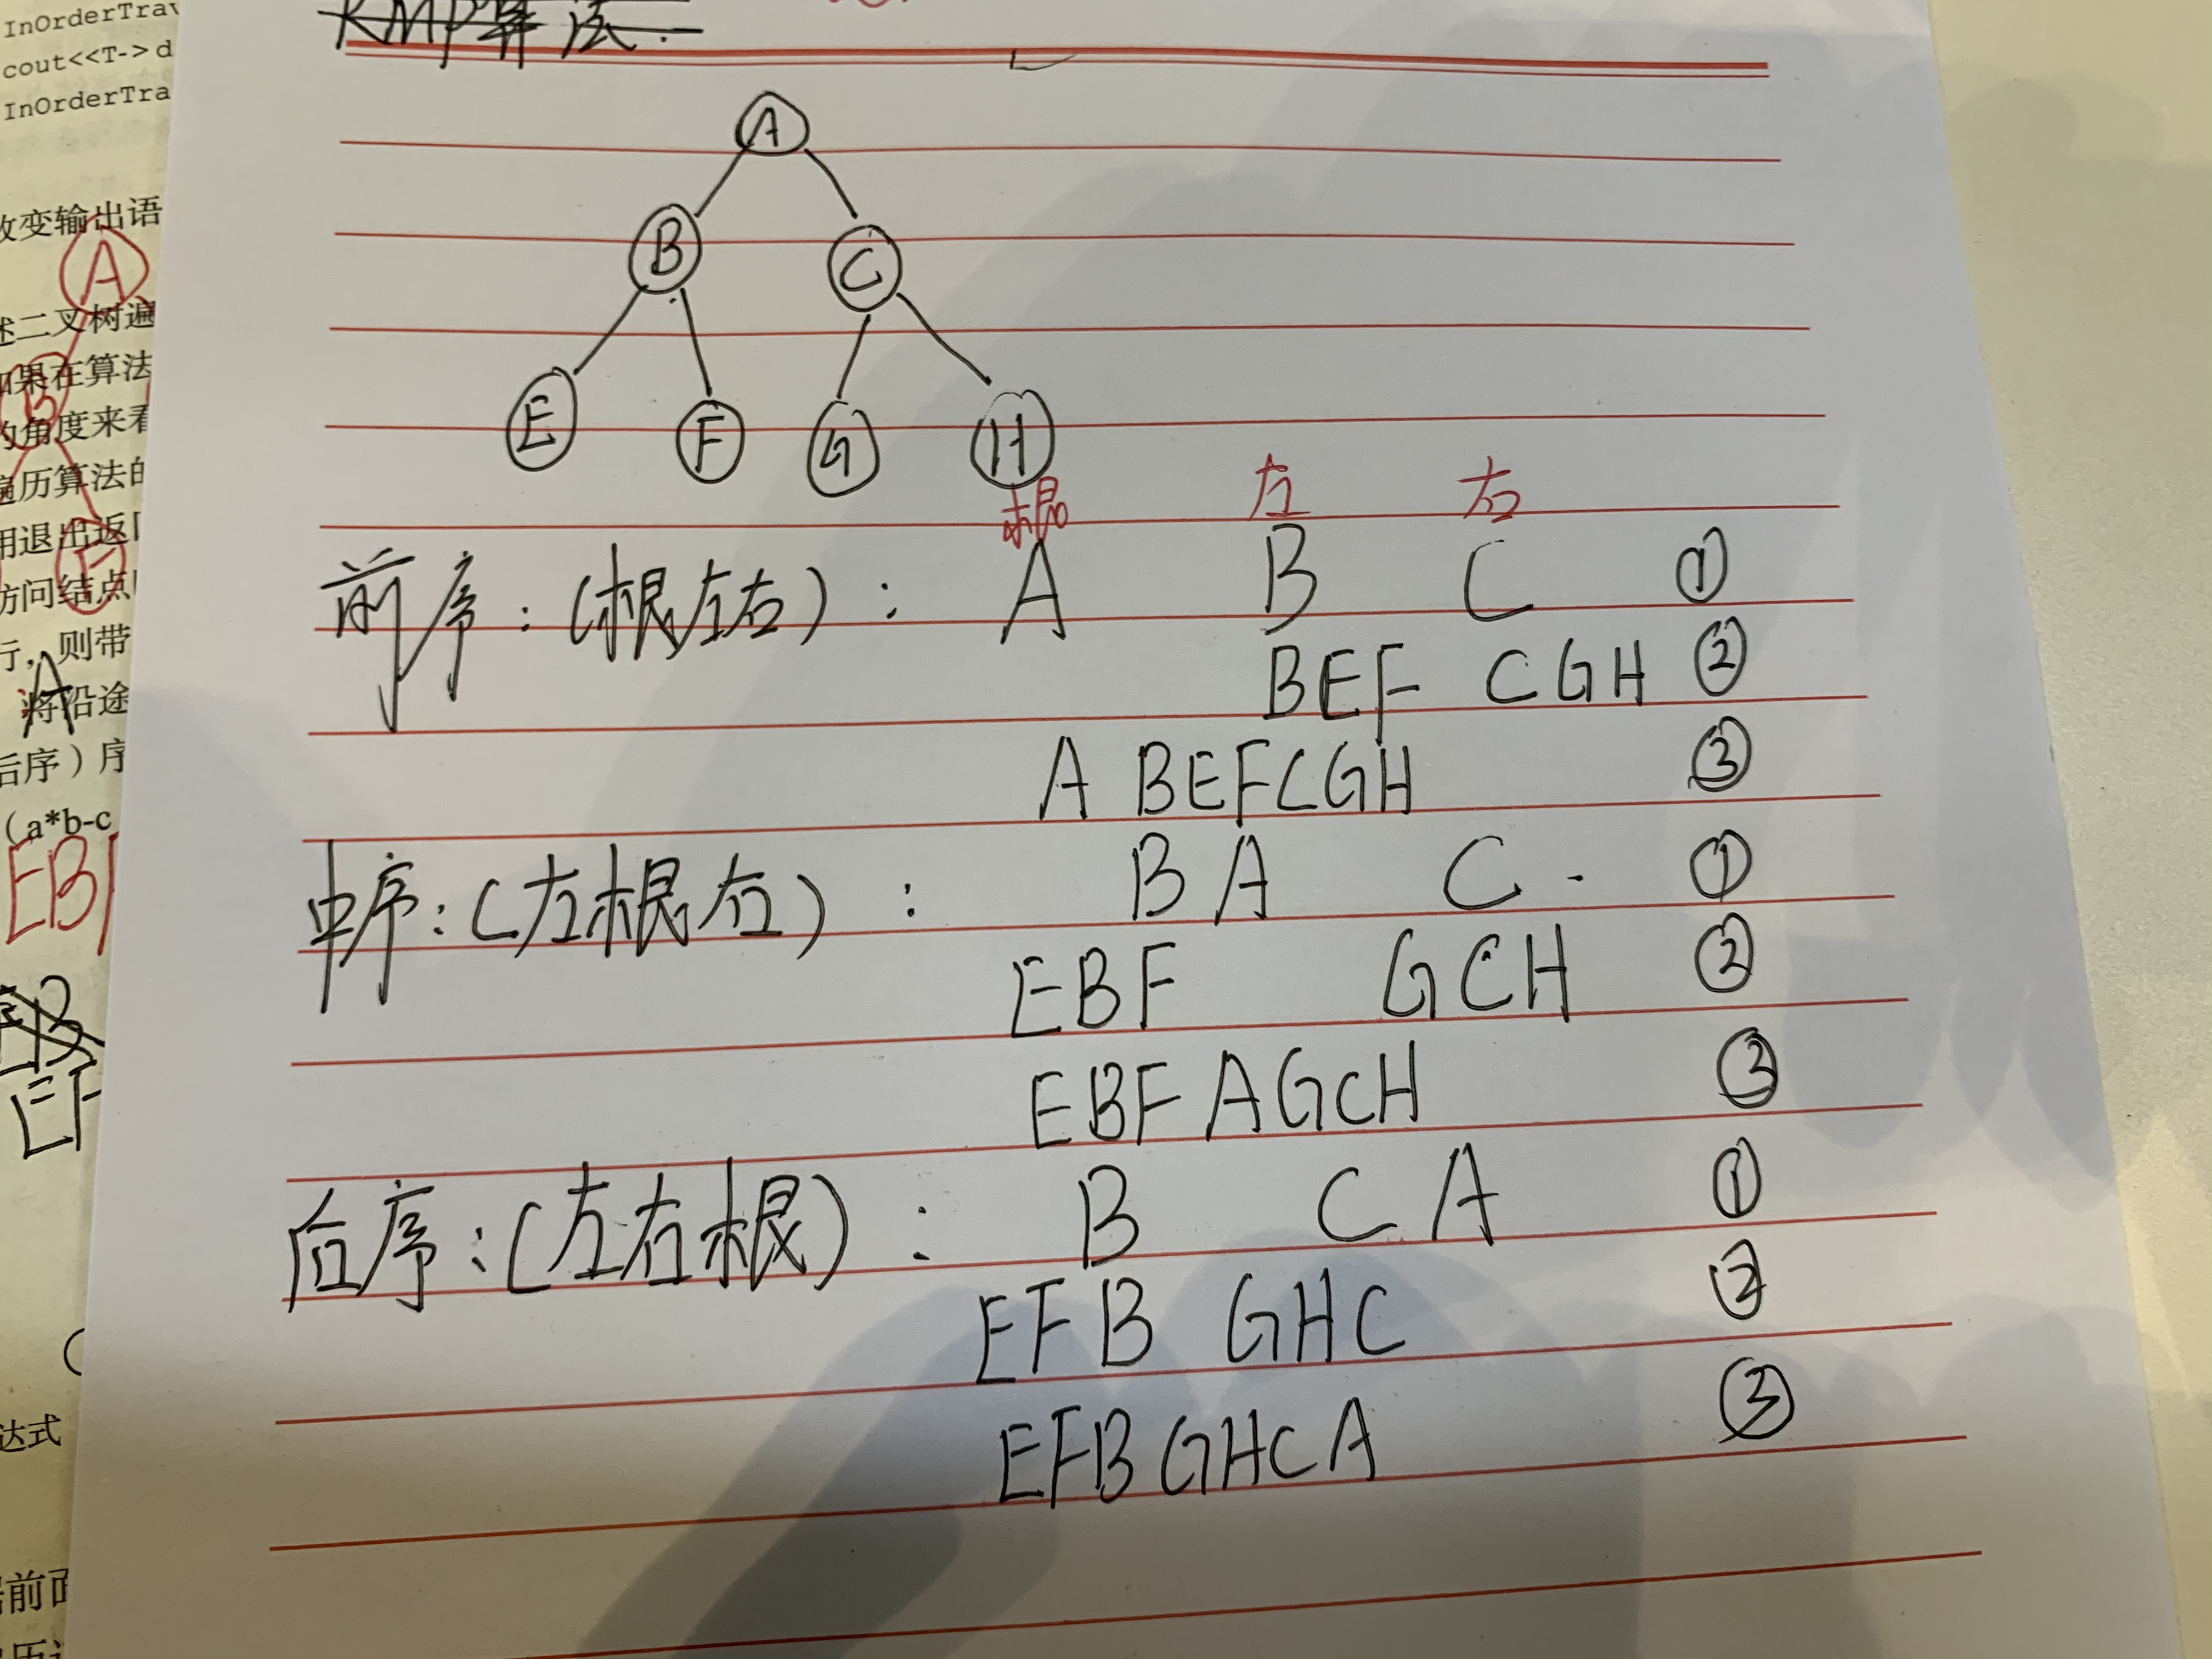 InOrderTrav
cout<<T->d
InOrderTra
改变输出语
A
述二叉树遍
如果在算法
B
的角度来看
遍历算法的
用退出返回
F
访问结点
行，则带
A
将沿途
后序）序
（a*b-c
EB
EB
EF
达式
前面
KMP算法:
A
B C
E F G H
根 左 右
前序:(根左右): A B C ①
BEF CGH ②
A BEFCGH ③
中序:(左根右): B A C ①
EBF GCH ②
EBF AGCH ③
后序:(左右根): B C A ①
EFB GHC ②
EFB GHC A ③